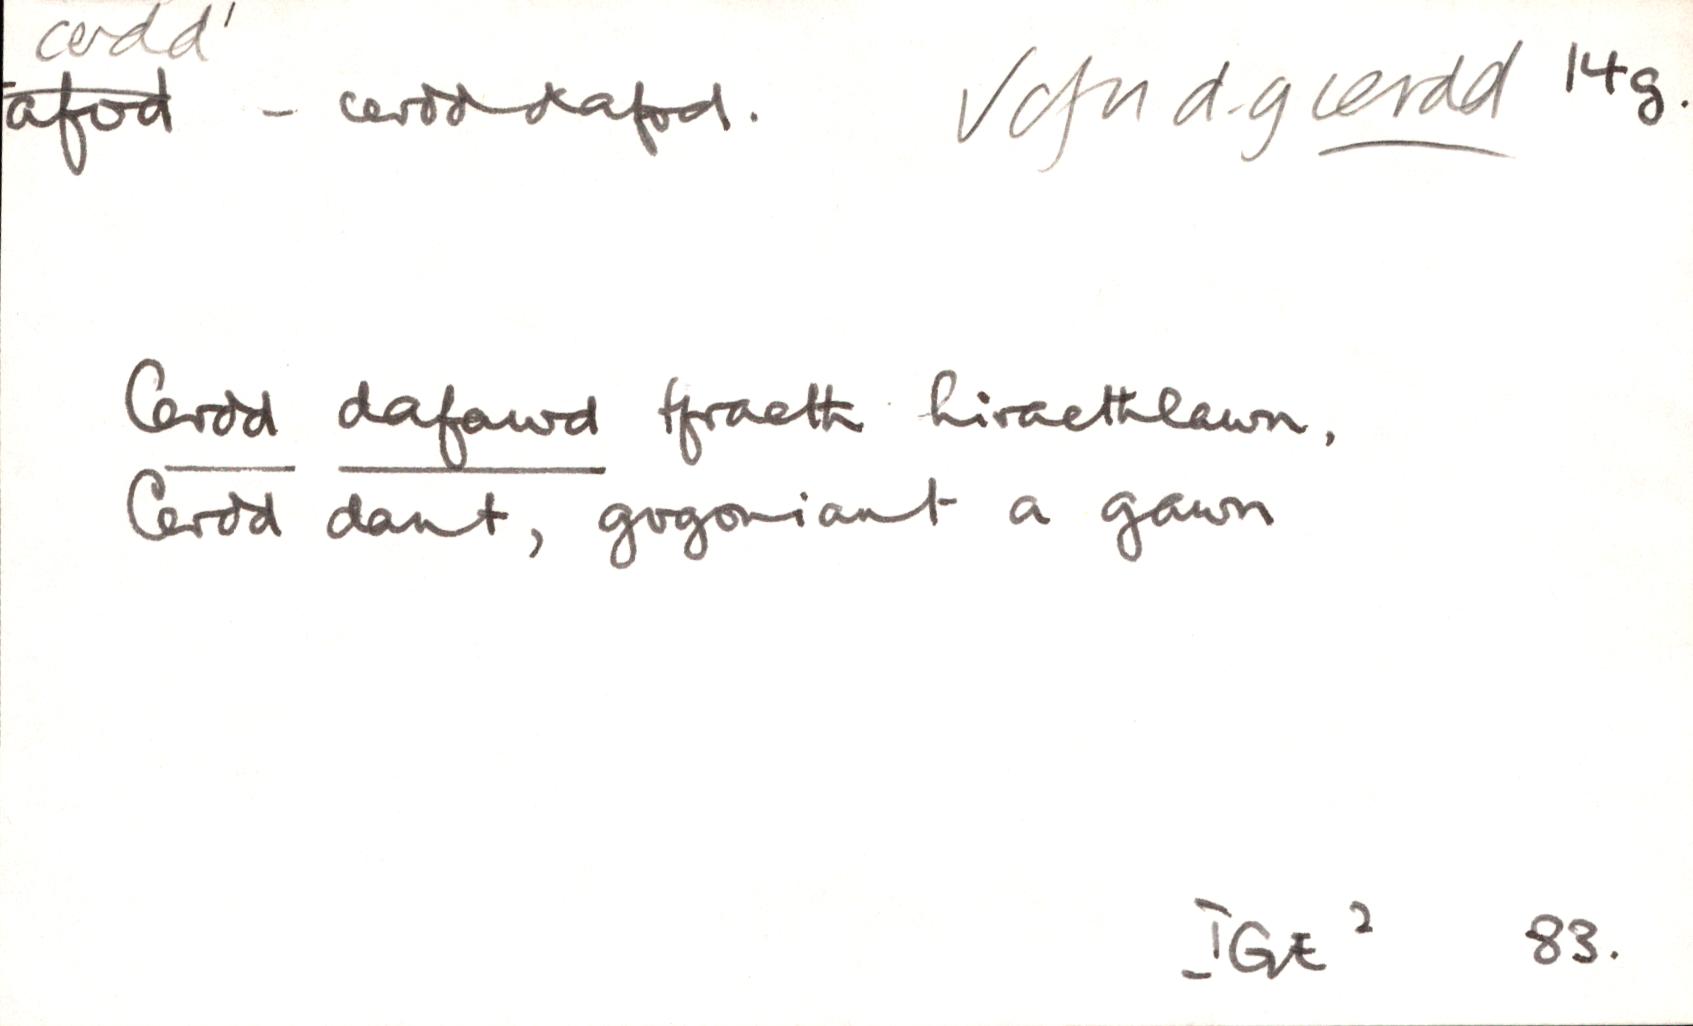 cerdd¹
tafod - cerdd dafod. √ cfn d.g cerdd 14g.
Cerdd dafawd ffraeth hiraethlawn,
Cerdd dant, gogoniant a gawn
IGE² 83.